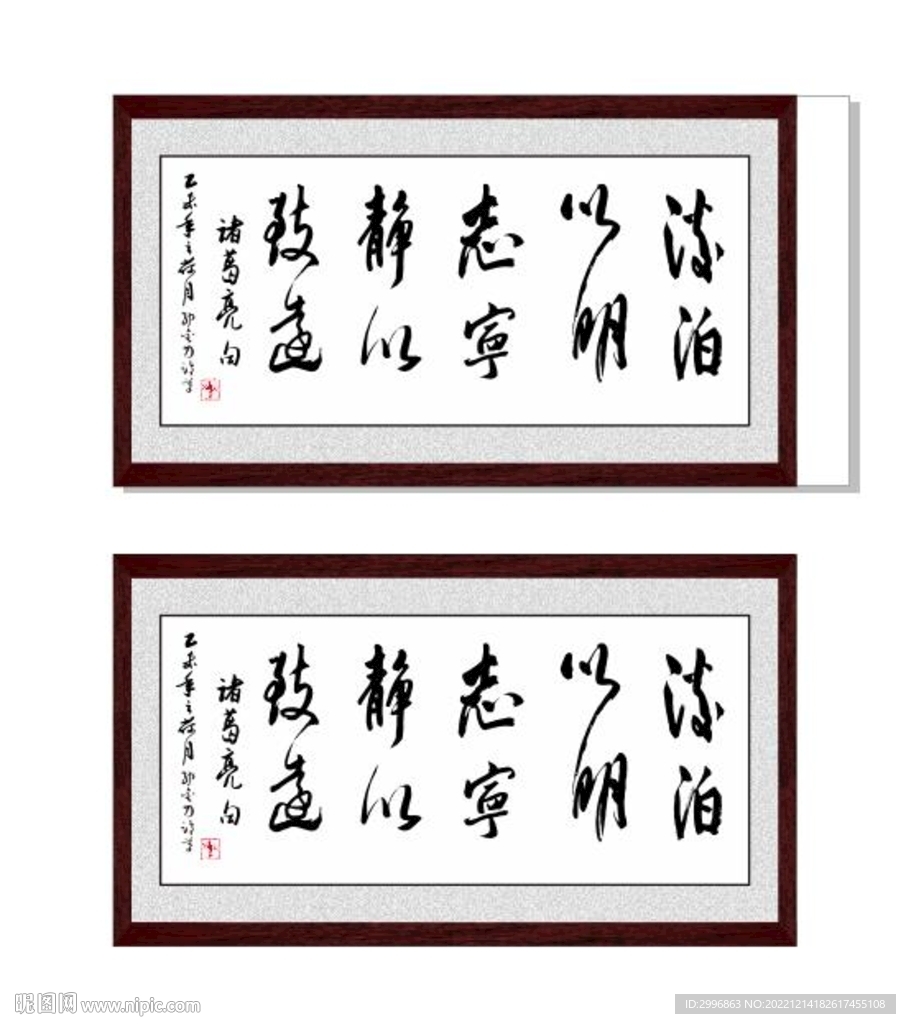 淡泊
以明
志寧
静以
致遠
诸葛亮句
乙未年之荷月
淡泊
以明
志寧
静以
致遠
诸葛亮句
乙未年之荷月
昵图网 www.nipic.com
ID:2996863 NO:20221214182617455108